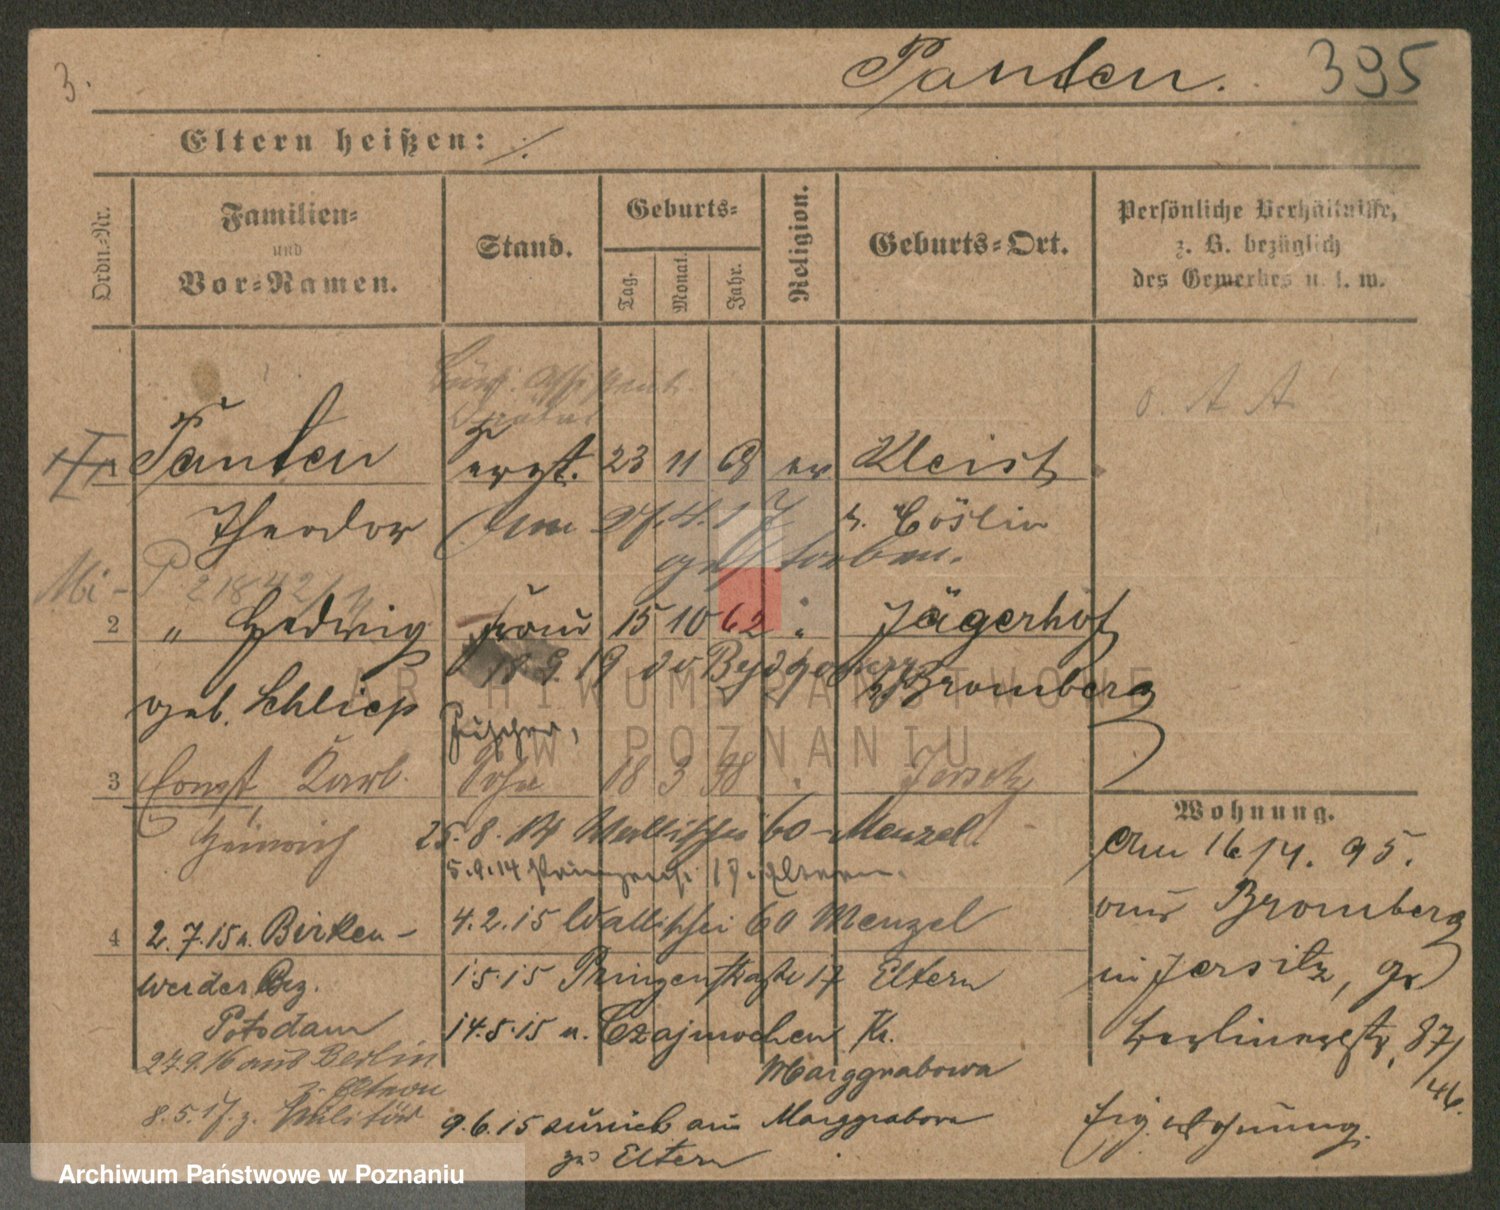 3.
Panten. 395
Eltern heißen: ./.
Ordn.-Nr.
Familien-
und
Vor-Namen.
Stand.
Geburts-
Tag.
Monat.
Jahr.
Religion.
Geburts-Ort.
Persönliche Verhältnisse,
z. B. bezüglich
des Gewerbes u. s. w.
1 Panten 23 11 63 ev Kleist
Theodor Am 27.4.17 k. Cöslin
gestorben.
2 " Hedwig Frau 15 10 62 " Jägerhof
18.9.19 Bydgoszcz
geb. Schliep Bromberg
Fischer,
3 Ernst Karl Sohn 18 3 98 " Jersitz
Heinrich 25.8.14 Wallischei 60 - Menzel
5.9.14 Prinzenstr. 17. Eltern.
4 2.7.15 n. Birken- 4.2.15 Wallischei 60 Menzel
werder Bez. 1.5.15 Prinzenstraße 17 Eltern
Potsdam 14.5.15 n. Czajmochen Kr.
Marggrabowa
27.9.16 aus Berlin
z. Eltern
8.5.17 z. Militär 9.6.15 zurück aus Marggrabowa
zu Eltern
Wohnung.
Am 16/4. 95.
aus Bromberg
in Jersitz, Gr
Berlinerstr. 87/
46.
Eig. Wohnung.
ARCHIWUM PAŃSTWOWE
W POZNANIU
Archiwum Państwowe w Poznaniu